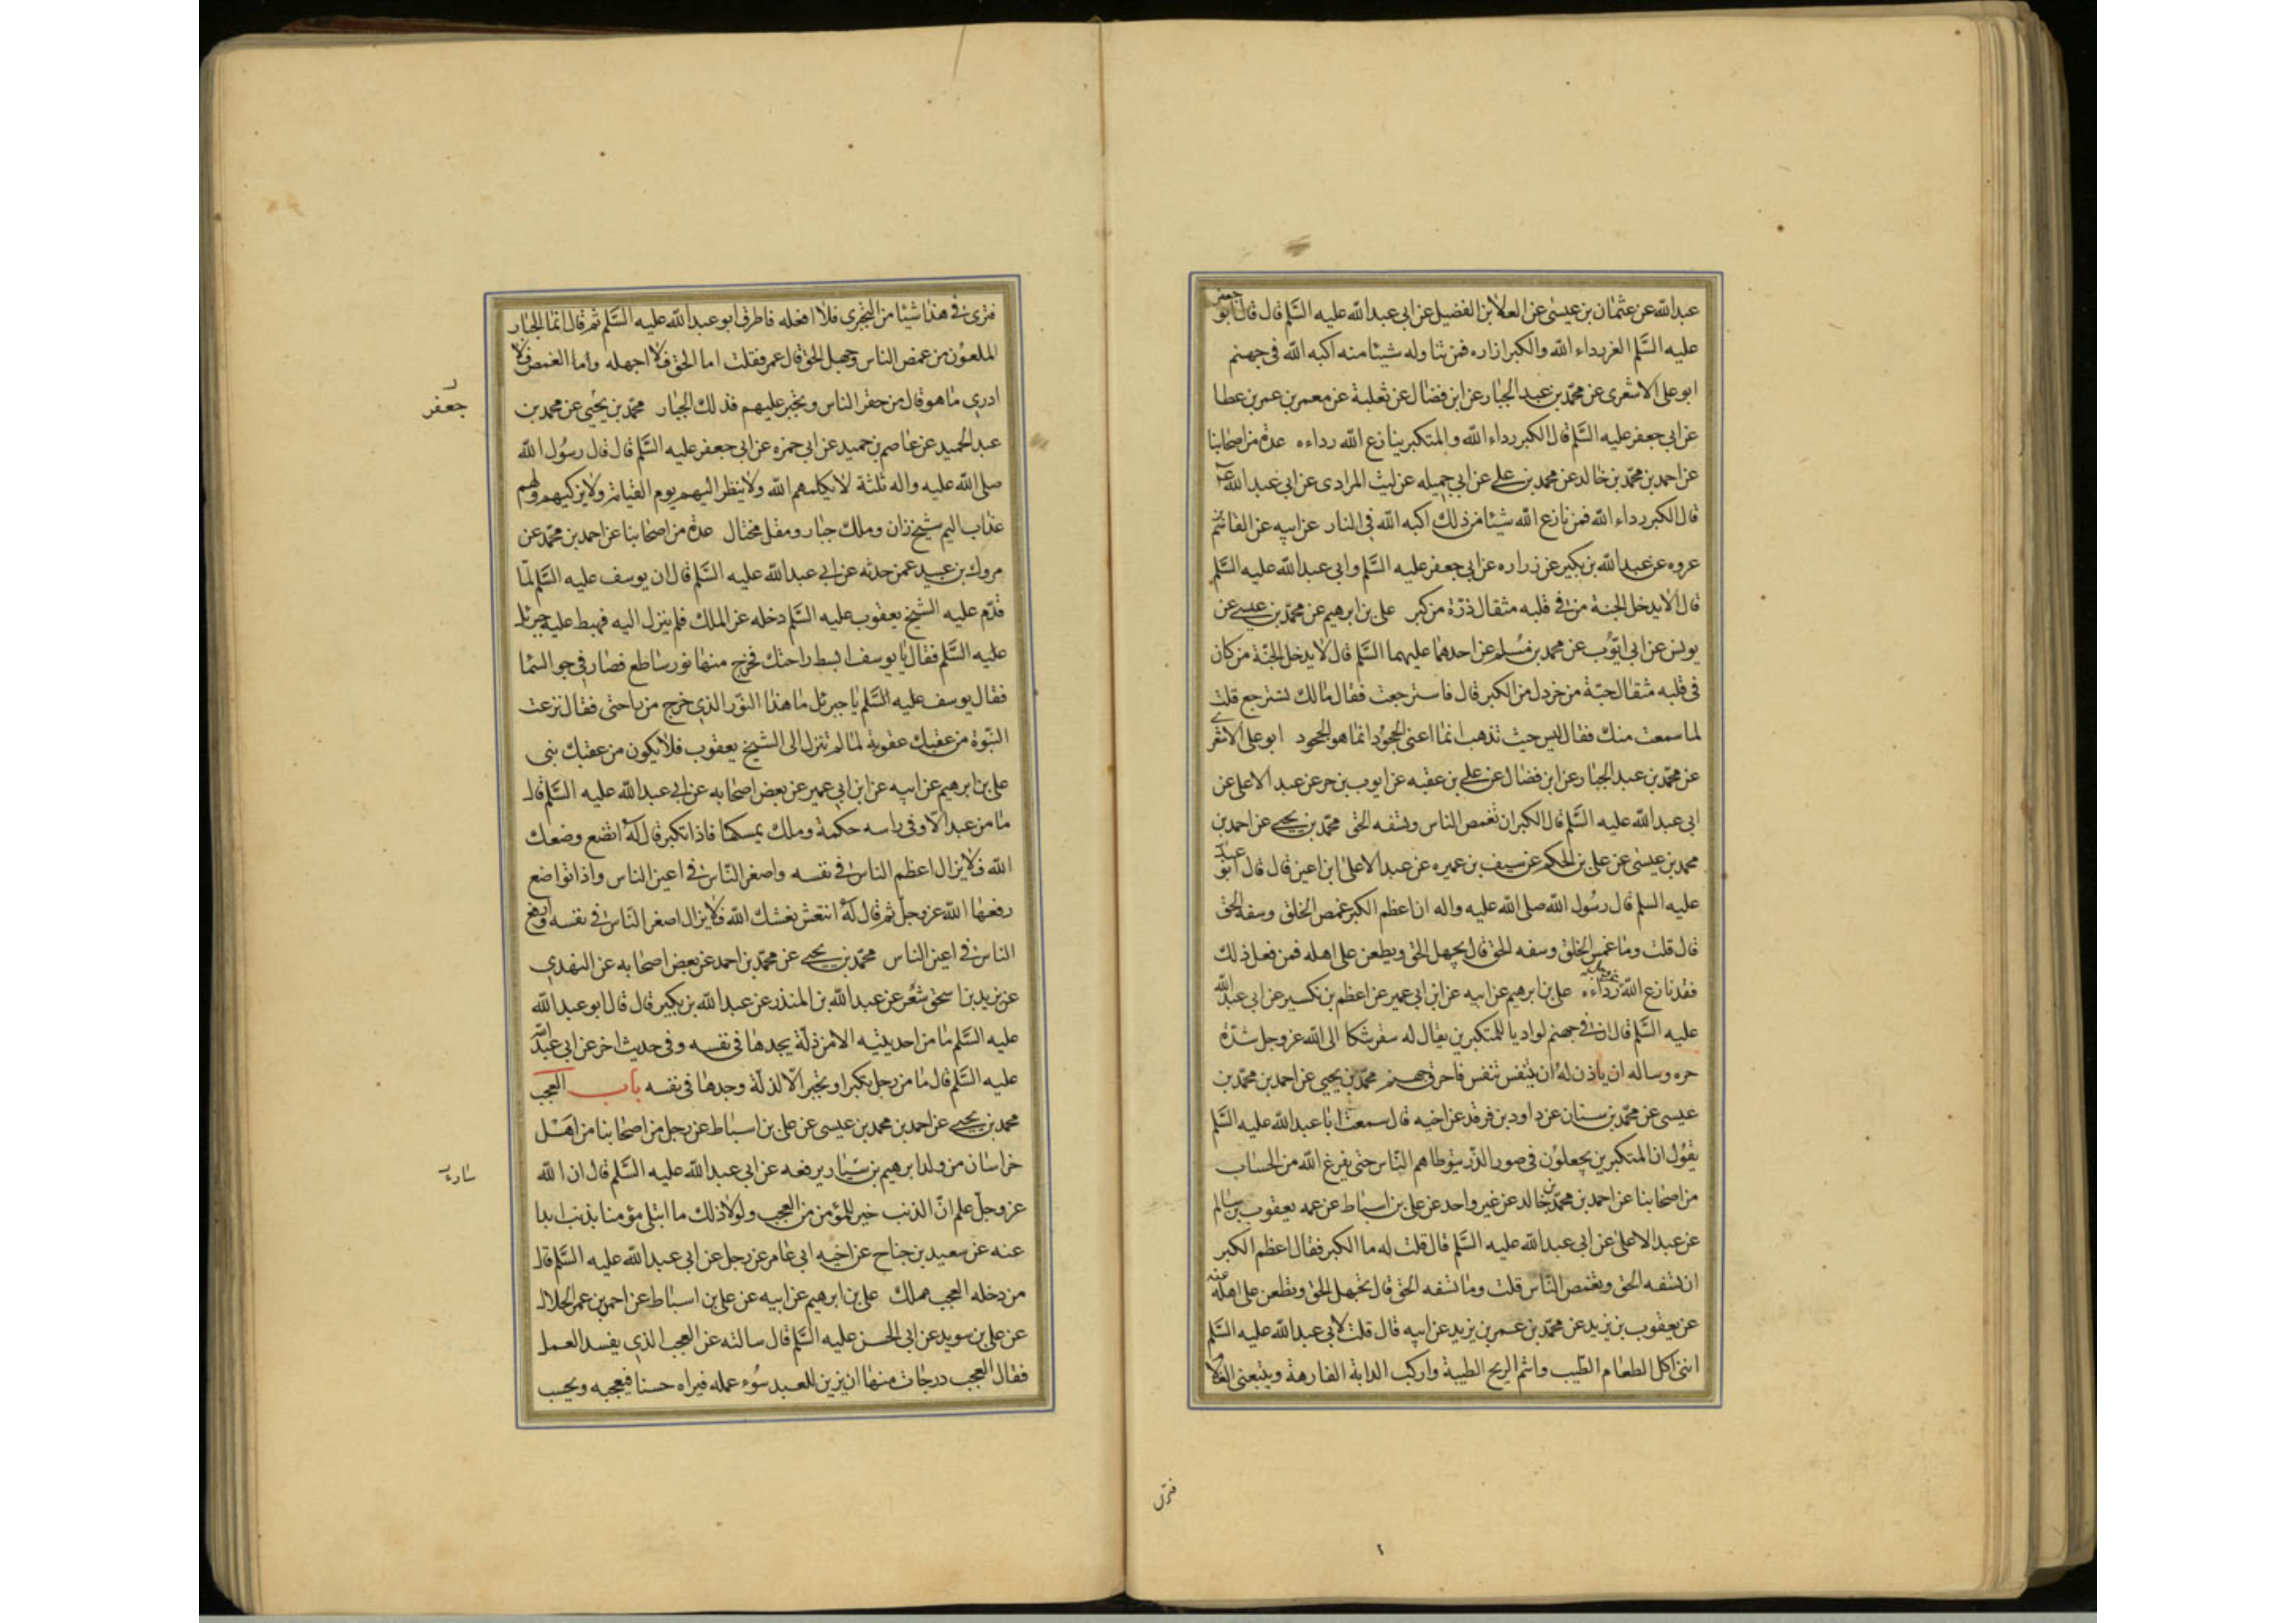 عبد الله عن عثمان بن عيسى عن العلا بن الفضيل عن ابى عبد الله عليه السلم قال قال ابو جعفر
عليه السلم العز رداء الله والكبر ازاره فمن تناوله شيئا منه اكبه الله فى جهنم
ابو على الاشعرى عن محمد بن عبد الجبار عن ابن فضال عن ثعلبة عن معمر بن عمر بن عطا
عن ابى جعفر عليه السلم قال الكبر رداء الله والمتكبر ينازع الله رداءه عدة من اصحابنا
عن احمد بن محمد بن خالد عن محمد بن على عن ابى جميله عن ليث المرادى عن ابى عبد الله ع
قال الكبر رداء الله فمن نازع الله شيئا من ذلك اكبه الله فى النار عن ابيه عن القاسم بن
عروه عن عبد الله بن بكير عن زراره عن ابى جعفر عليه السلم وابى عبد الله عليه السلم
قال لا يدخل الجنة من فى قلبه مثقال ذرة من كبر على بن ابرهيم عن محمد بن عيسى عن
يونس عن ابى ايوب عن محمد بن مسلم عن احدهما عليهما السلم قال لا يدخل الجنة من كان
فى قلبه مثقال حبة من خردل من الكبر قال فاسترجعت فقال مالك تسترجع قلت
لما سمعت منك فقال ليس حيث تذهب انما اعنى الجحود انما هو الجحود ابو على الاشعرى
عن محمد بن عبد الجبار عن ابن فضال عن على بن عقبه عن ايوب بن حر عن عبد الاعلى عن
ابى عبد الله عليه السلم قال الكبر ان تغمص الناس وتسفه الحق محمد بن يحيى عن احمد بن
محمد بن عيسى عن على بن الحكم عن سيف بن عميره عن عبد الاعلى ابن اعين قال قال ابو عبد
عليه السلم قال رسول الله صلى الله عليه واله ان اعظم الكبر غمص الخلق وسفه الحق
قال قلت وما غمص الخلق وسفه الحق قال يجهل الحق ويطعن على اهله فمن فعل ذلك
فقد نازع الله رداءه على بن ابرهيم عن ابيه عن ابن ابى عمير عن اعظم بن نكسير عن ابى عبد الله
عليه السلم قال ان فى جهنم لواديا للمتكبرين يقال له سقر شكا الى الله عز وجل شدة
حره وساله ان ياذن له ان يتنفس تنفس فاحرق جهنم محمد بن يحيى عن احمد بن محمد بن
عيسى عن محمد بن سنان عن داود بن فرقد عن اخيه قال سمعت ابا عبد الله عليه السلم
يقول ان المتكبرين يجعلون فى صور الذر يتوطاهم الناس حتى يفرغ الله من الحساب
من اصحابنا عن احمد بن محمد بن خالد عن غير واحد عن على بن اسباط عن عمه يعقوب بن سالم
عن عبد الاعلى عن ابى عبد الله عليه السلم قال قلت له ما الكبر فقال اعظم الكبر
ان تسفه الحق وتغمص الناس قلت وما تسفه الحق قال تجهل الحق وتطعن على اهله عنه
عن يعقوب بن يزيد عن محمد بن عمر بن يزيد عن ابيه قال قلت لابى عبد الله عليه السلم
اننى اكل الطعام الطيب واشم الريح الطيبة واركب الدابة الفارهة ويتبعنى الغلام
فترى
فترى فى هذا شيئا من التجبرى فلا افعله فاطرق ابو عبد الله عليه السلم ثم قال انما الجبار
الملعون من غمص الناس وجهل الحق قال عمر فقلت اما الحق فلا اجهله واما الغمص فلا
ادرى ما هو قال من حقر الناس وتجبر عليهم فذلك الجبار محمد بن يحيى عن محمد بن
جعفر
عبد الحميد عن عاصم بن حميد عن ابى حمزه عن ابى جعفر عليه السلم قال قال رسول الله
صلى الله عليه واله ثلثة لا يكلمهم الله ولا ينظر اليهم يوم القيامة ولا يزكيهم ولهم
عذاب اليم شيخ زان وملك جبار ومقل مختال عدة من اصحابنا عن احمد بن محمد عن
مروك بن عبيد عمن حدثه عن ابى عبد الله عليه السلم قال ان يوسف عليه السلم لما
قدم عليه الشيخ يعقوب عليه السلم دخله عز الملك فلم ينزل اليه فهبط عليه جبرئل
عليه السلم فقال يا يوسف ابسط راحتك فخرج منها نور ساطع فصار فى جو السما
فقال يوسف عليه السلم يا جبرئل ما هذا النور الذى خرج من راحتى فقال نزعت
النبوة من عقبك عقوبة لما لم تنزل الى الشيخ يعقوب فلا يكون من عقبك نبى
على بن ابرهيم عن ابيه عن ابن ابى عمير عن بعض اصحابه عن ابى عبد الله عليه السلم قال
ما من عبد الا وفى راسه حكمة وملك يمسكها فاذا تكبر قال له اتضع وضعك
الله فلا يزال اعظم الناس فى نفسه واصغر الناس فى اعين الناس واذا تواضع
رفعها الله عز وجل ثم قال له انتعش نعشك الله فلا يزال اصغر الناس فى نفسه وارفع
الناس فى اعين الناس محمد بن يحيى عن محمد بن احمد عن بعض اصحابه عن النهدى
عن يزيد بن اسحق شعر عن عبد الله بن المنذر عن عبد الله بن بكير قال قال ابو عبد الله
عليه السلم ما من احد يتيه الا من ذلة يجدها فى نفسه وفى حديث اخر عن ابى عبد الله
عليه السلم قال ما من رجل تكبر او تجبر الا لذلة وجدها فى نفسه باب العجب
محمد بن يحيى عن احمد بن محمد بن عيسى عن على بن اسباط عن رجل من اصحابنا من اهل
خراسان من ولد ابرهيم بن سيار يرفعه عن ابى عبد الله عليه السلم قال ان الله
عز وجل علم ان الذنب خير للمؤمن من العجب ولولا ذلك ما ابتلى مؤمنا بذنب ابدا
عنه عن سعيد بن جناح عن اخيه ابى عامر عن رجل عن ابى عبد الله عليه السلم قال
من دخله العجب هلك على بن ابرهيم عن ابيه عن على بن اسباط عن احمد بن عمر الحلال
عن على بن سويد عن ابى الحسن عليه السلم قال سالته عن العجب الذى يفسد العمل
فقال العجب درجات منها ان يزين للعبد سوء عمله فيراه حسنا فيعجبه ويحسب